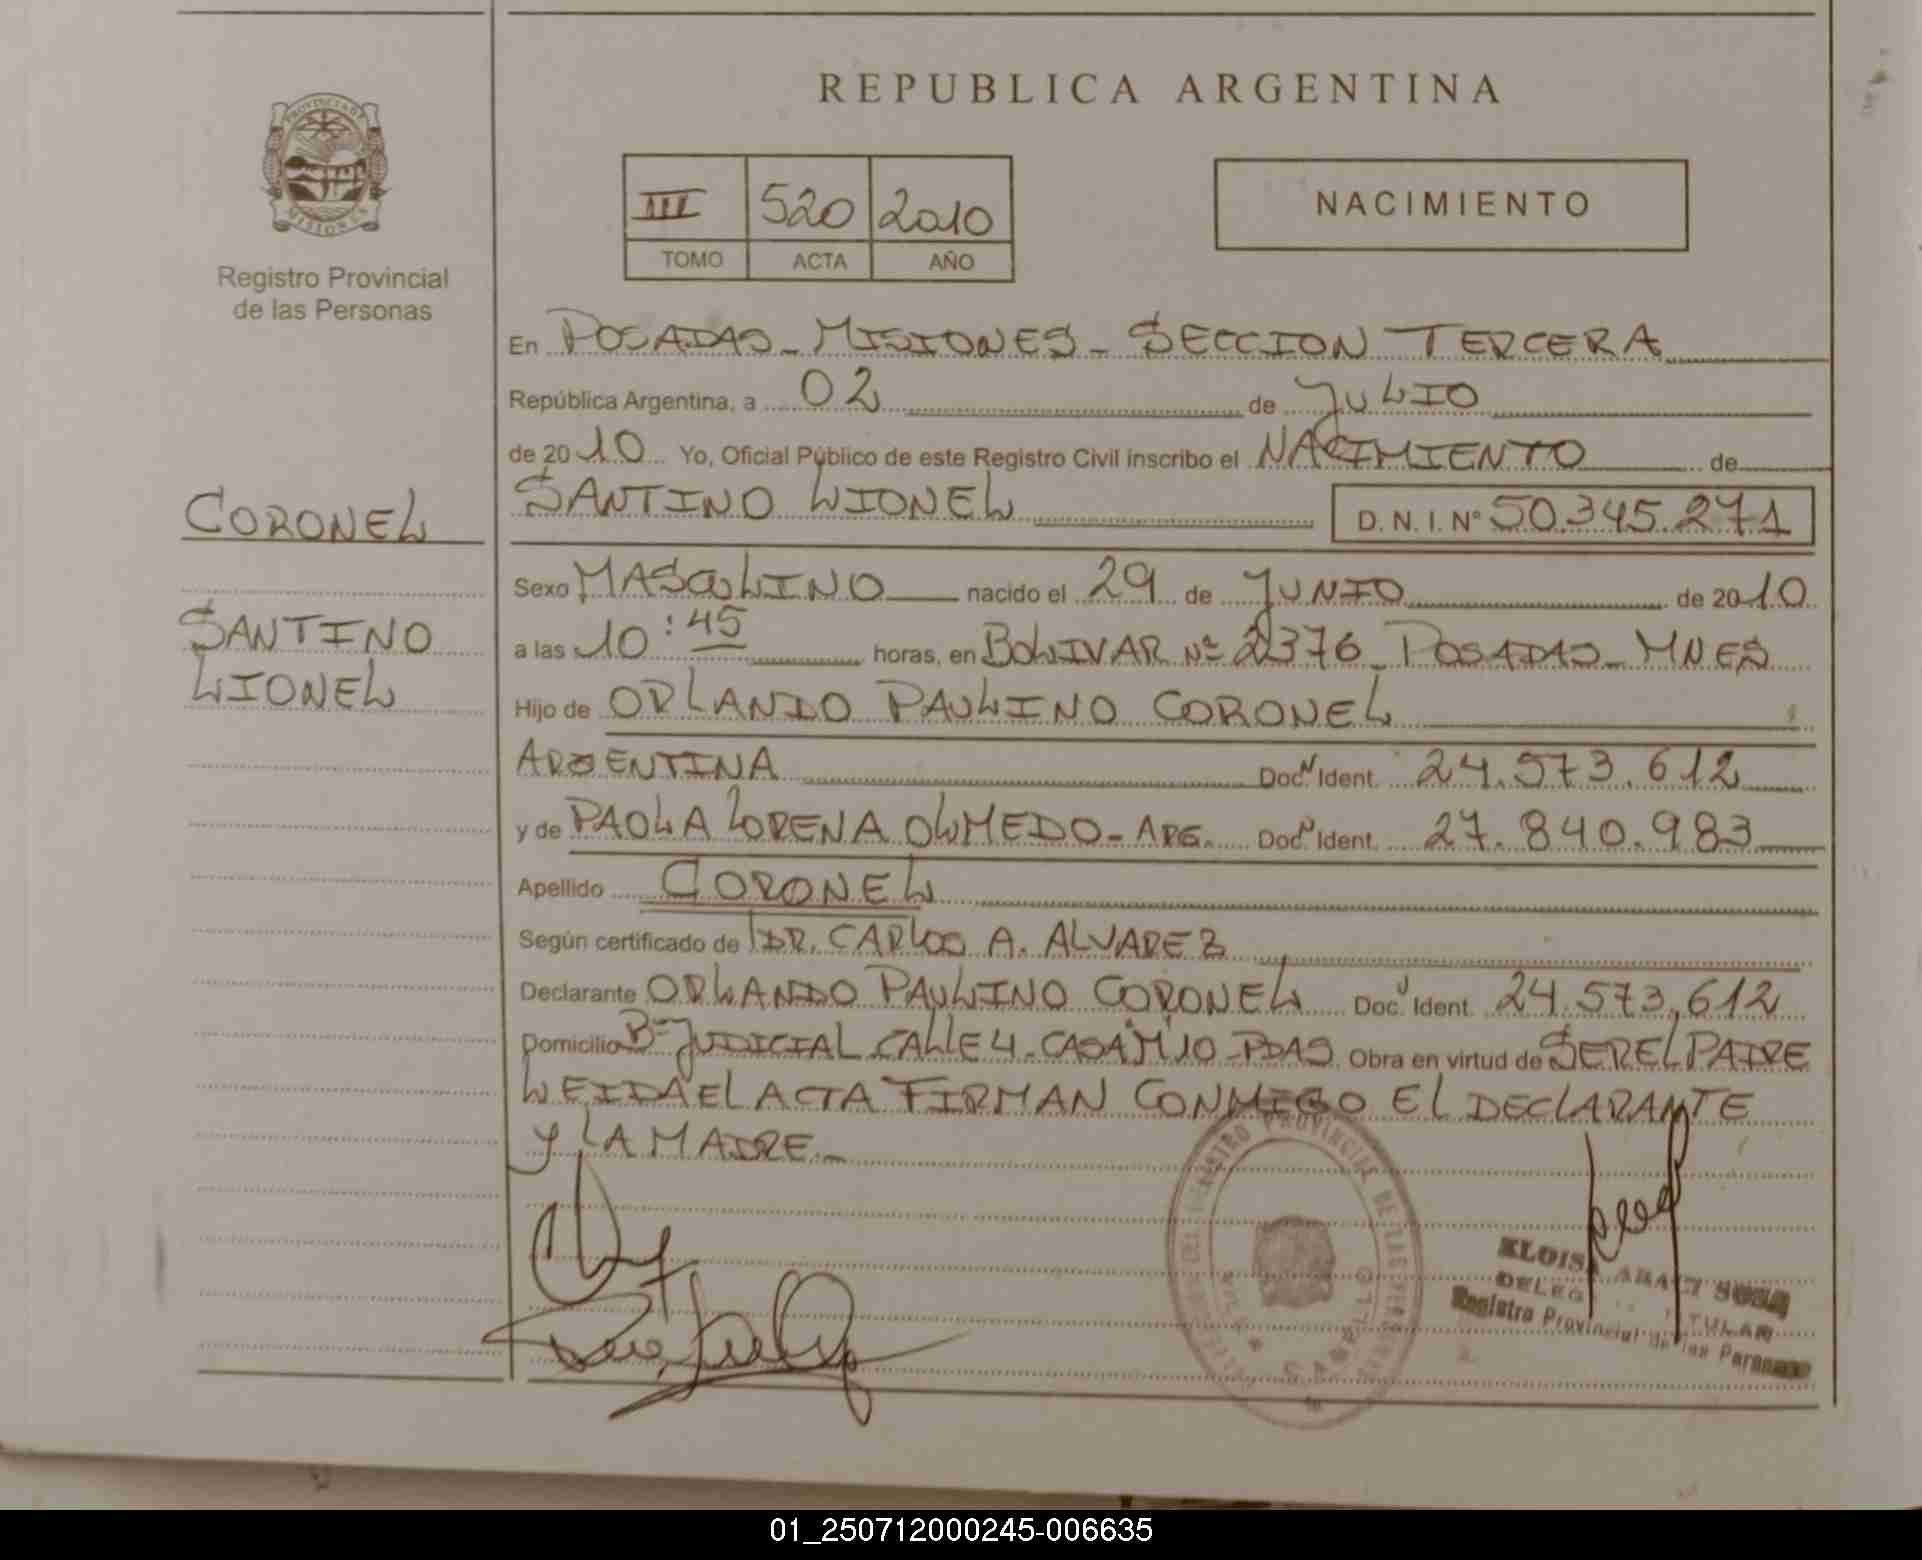 REPUBLICA ARGENTINA
PROVINCIA DE
MISIONES
Registro Provincial
de las Personas
III 520 2010
TOMO ACTA AÑO
NACIMIENTO
En POSADAS - MISIONES - SECCION TERCERA
República Argentina, a 02 de JULIO
de 2010 Yo, Oficial Público de este Registro Civil inscribo el NACIMIENTO de
CORONEL
SANTINO LIONEL D. N. I. Nº 50.345.271
SANTINO
LIONEL
Sexo MASCULINO nacido el 29 de JUNIO de 2010
a las 10:45 horas, en BOLIVAR Nº 2376 - POSADAS - MNES
Hijo de ORLANDO PAULINO CORONEL
ARGENTINA Doc. Ident. 24.573.612
y de PAOLA LORENA OLMEDO - ARG. Doc. Ident. 27.840.983
Apellido CORONEL
Según certificado de DR. CARLOS A. ALVAREZ
Declarante ORLANDO PAULINO CORONEL Doc. Ident. 24.573.612
Domicilio Bº JUDICIAL CALLE 4 - CASA M10 - PDAS Obra en virtud de SER EL PADRE
LEIDA EL ACTA FIRMAN CONMIGO EL DECLARANTE
Y LA MADRE. -
REGISTRO PROVINCIAL DE LAS PERSONAS
ARACI SOSA
Registro Provincial de las Personas
01_250712000245-006635